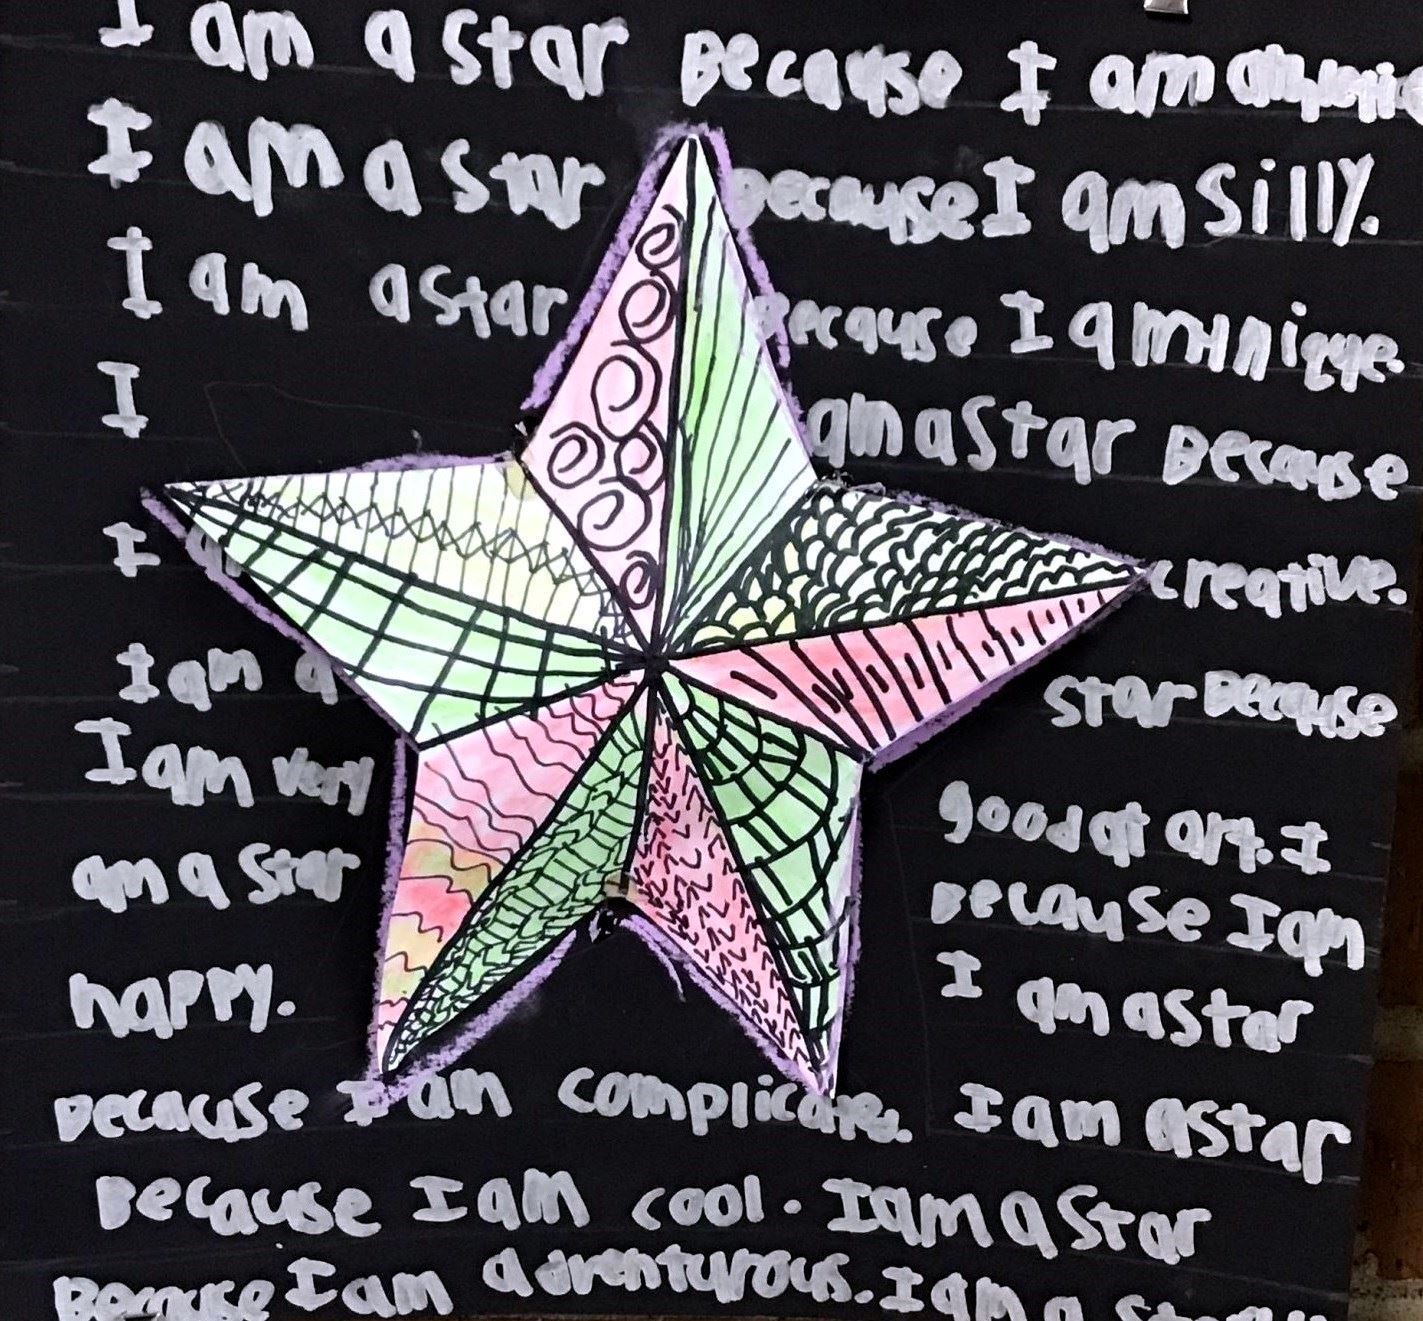 I am a star Because I am
I am a star because I am silly.
I am a star because I am unique.
I am a star Because
I a creative.
I am a star Because
I am very good at art. I
am a star Because I am
happy. I am a star
Because I am complicate. I am a star
Because I am cool. I am a star
Because I am adventurous. I am a